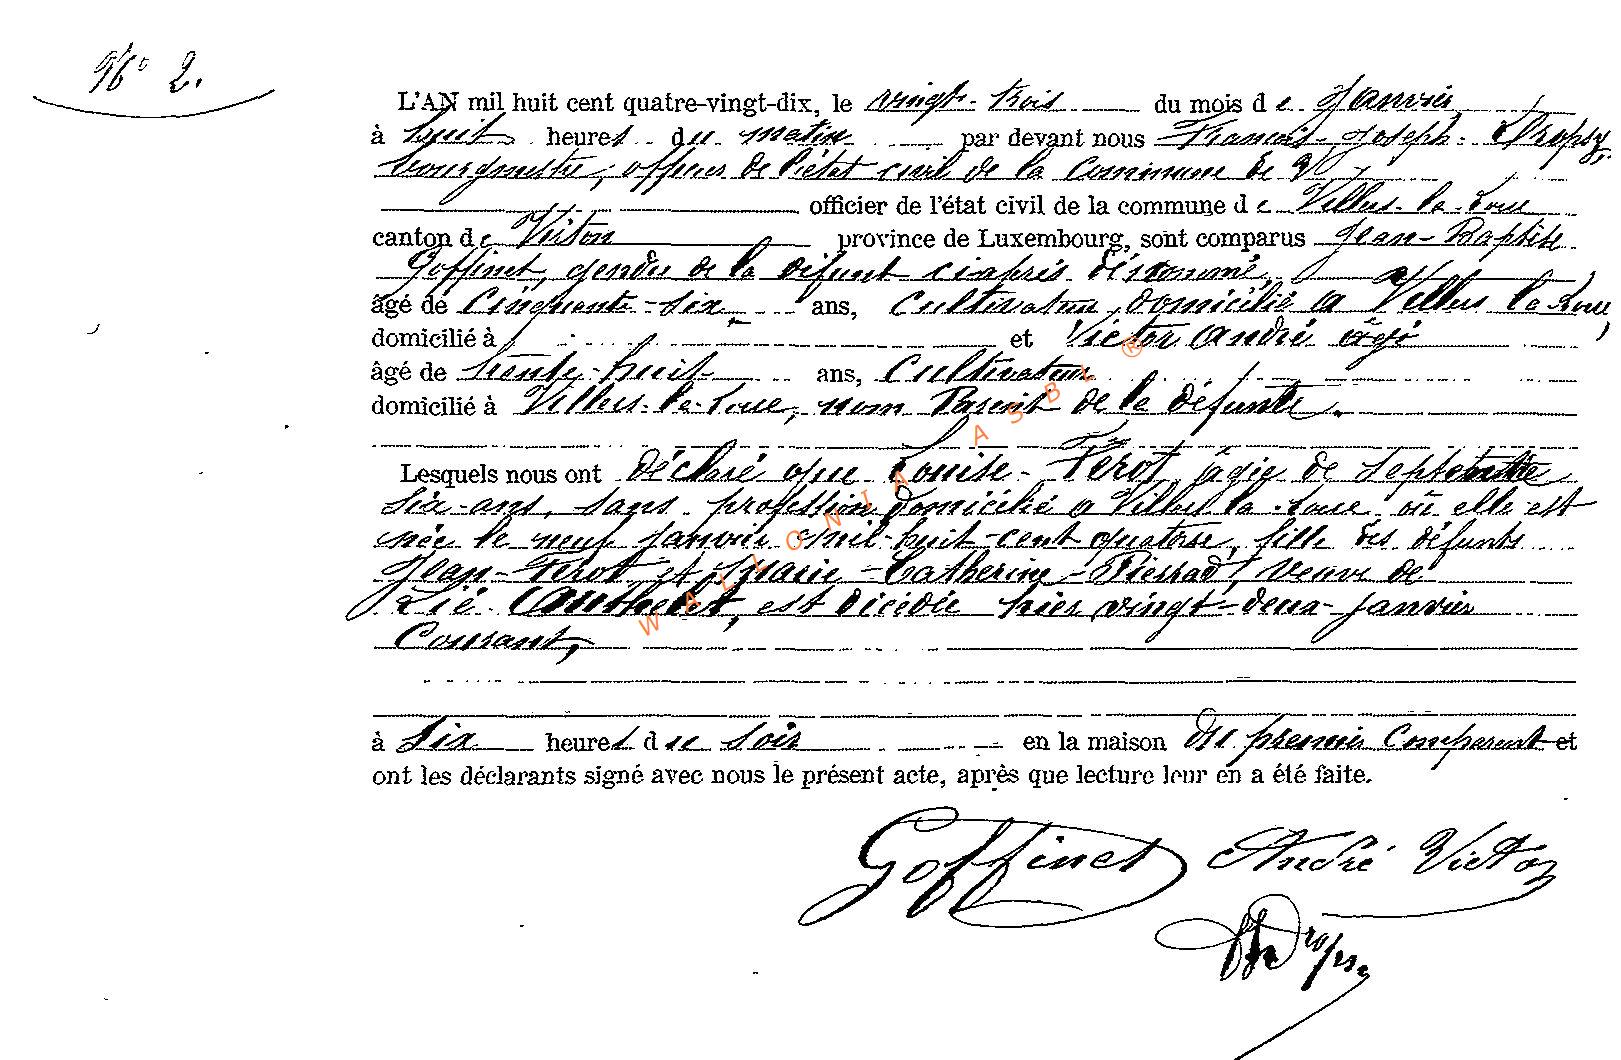 N° 2.
L'AN mil huit cent quatre-vingt-dix, le vingt-trois du mois de Janvier
à huit heures du matin par devant nous François-Joseph- Dropsy,
bourgmestre, officier de l'état civil de la Commune de V
officier de l'état civil de la commune de Villers-la-Loue
canton de Virton province de Luxembourg, sont comparus Jean-Baptiste
Goffinet, gendre de la défunte ciaprès dénommé,
âgé de Cinquante-six, ans, Cultivateur, domicilié a Villers la-Loue,
domicilié à et Victor André âgé
âgé de trente-huit ans, Cultivateur
domicilié à Villers-la-Loue, non Parent de la défunte.
Lesquels nous ont déclaré que Louise-Ferot, âgée de Septente
six-ans, sans profession domicilié a Villers la-Loue où elle est
née le neuf janvier mil-huit-cent quatorze, fille des défunts
Jean-Ferot et Marie-Catherine-Pierrad, veuve de
est décédée hier vingt-deux-janvier
Courant,
à Six heures du soir en la maison du premier Comparent et
ont les déclarants signé avec nous le présent acte, après que lecture leur en a été faite.
Goffinet André Victor
Dropsy
WALLONIA ASBL ®